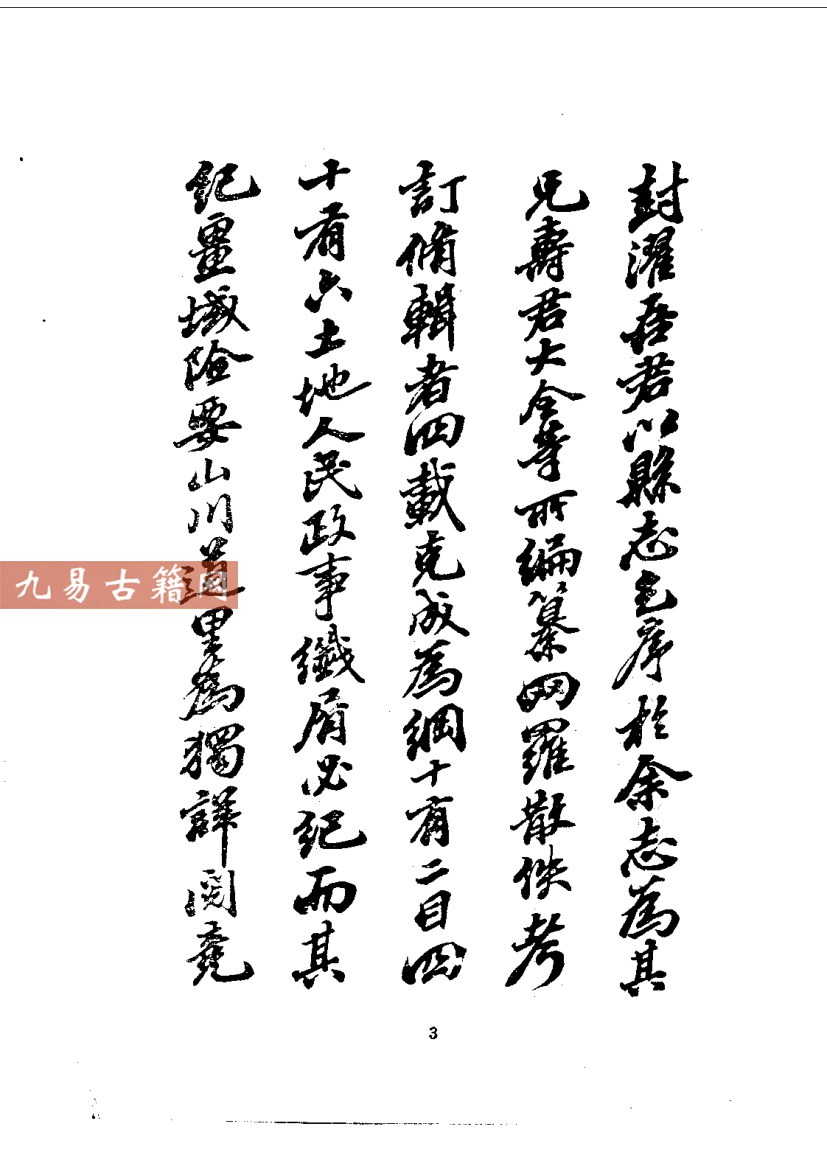 封濯吾君以縣志乞序於余志為其
兄壽君大令等所編纂网羅散佚考
訂脩輯者四載克成為綱十有二目四
十有六土地人民政事纖屑必紀而其
紀畺域險要山川道里為獨詳閱竟
九易古籍网
3